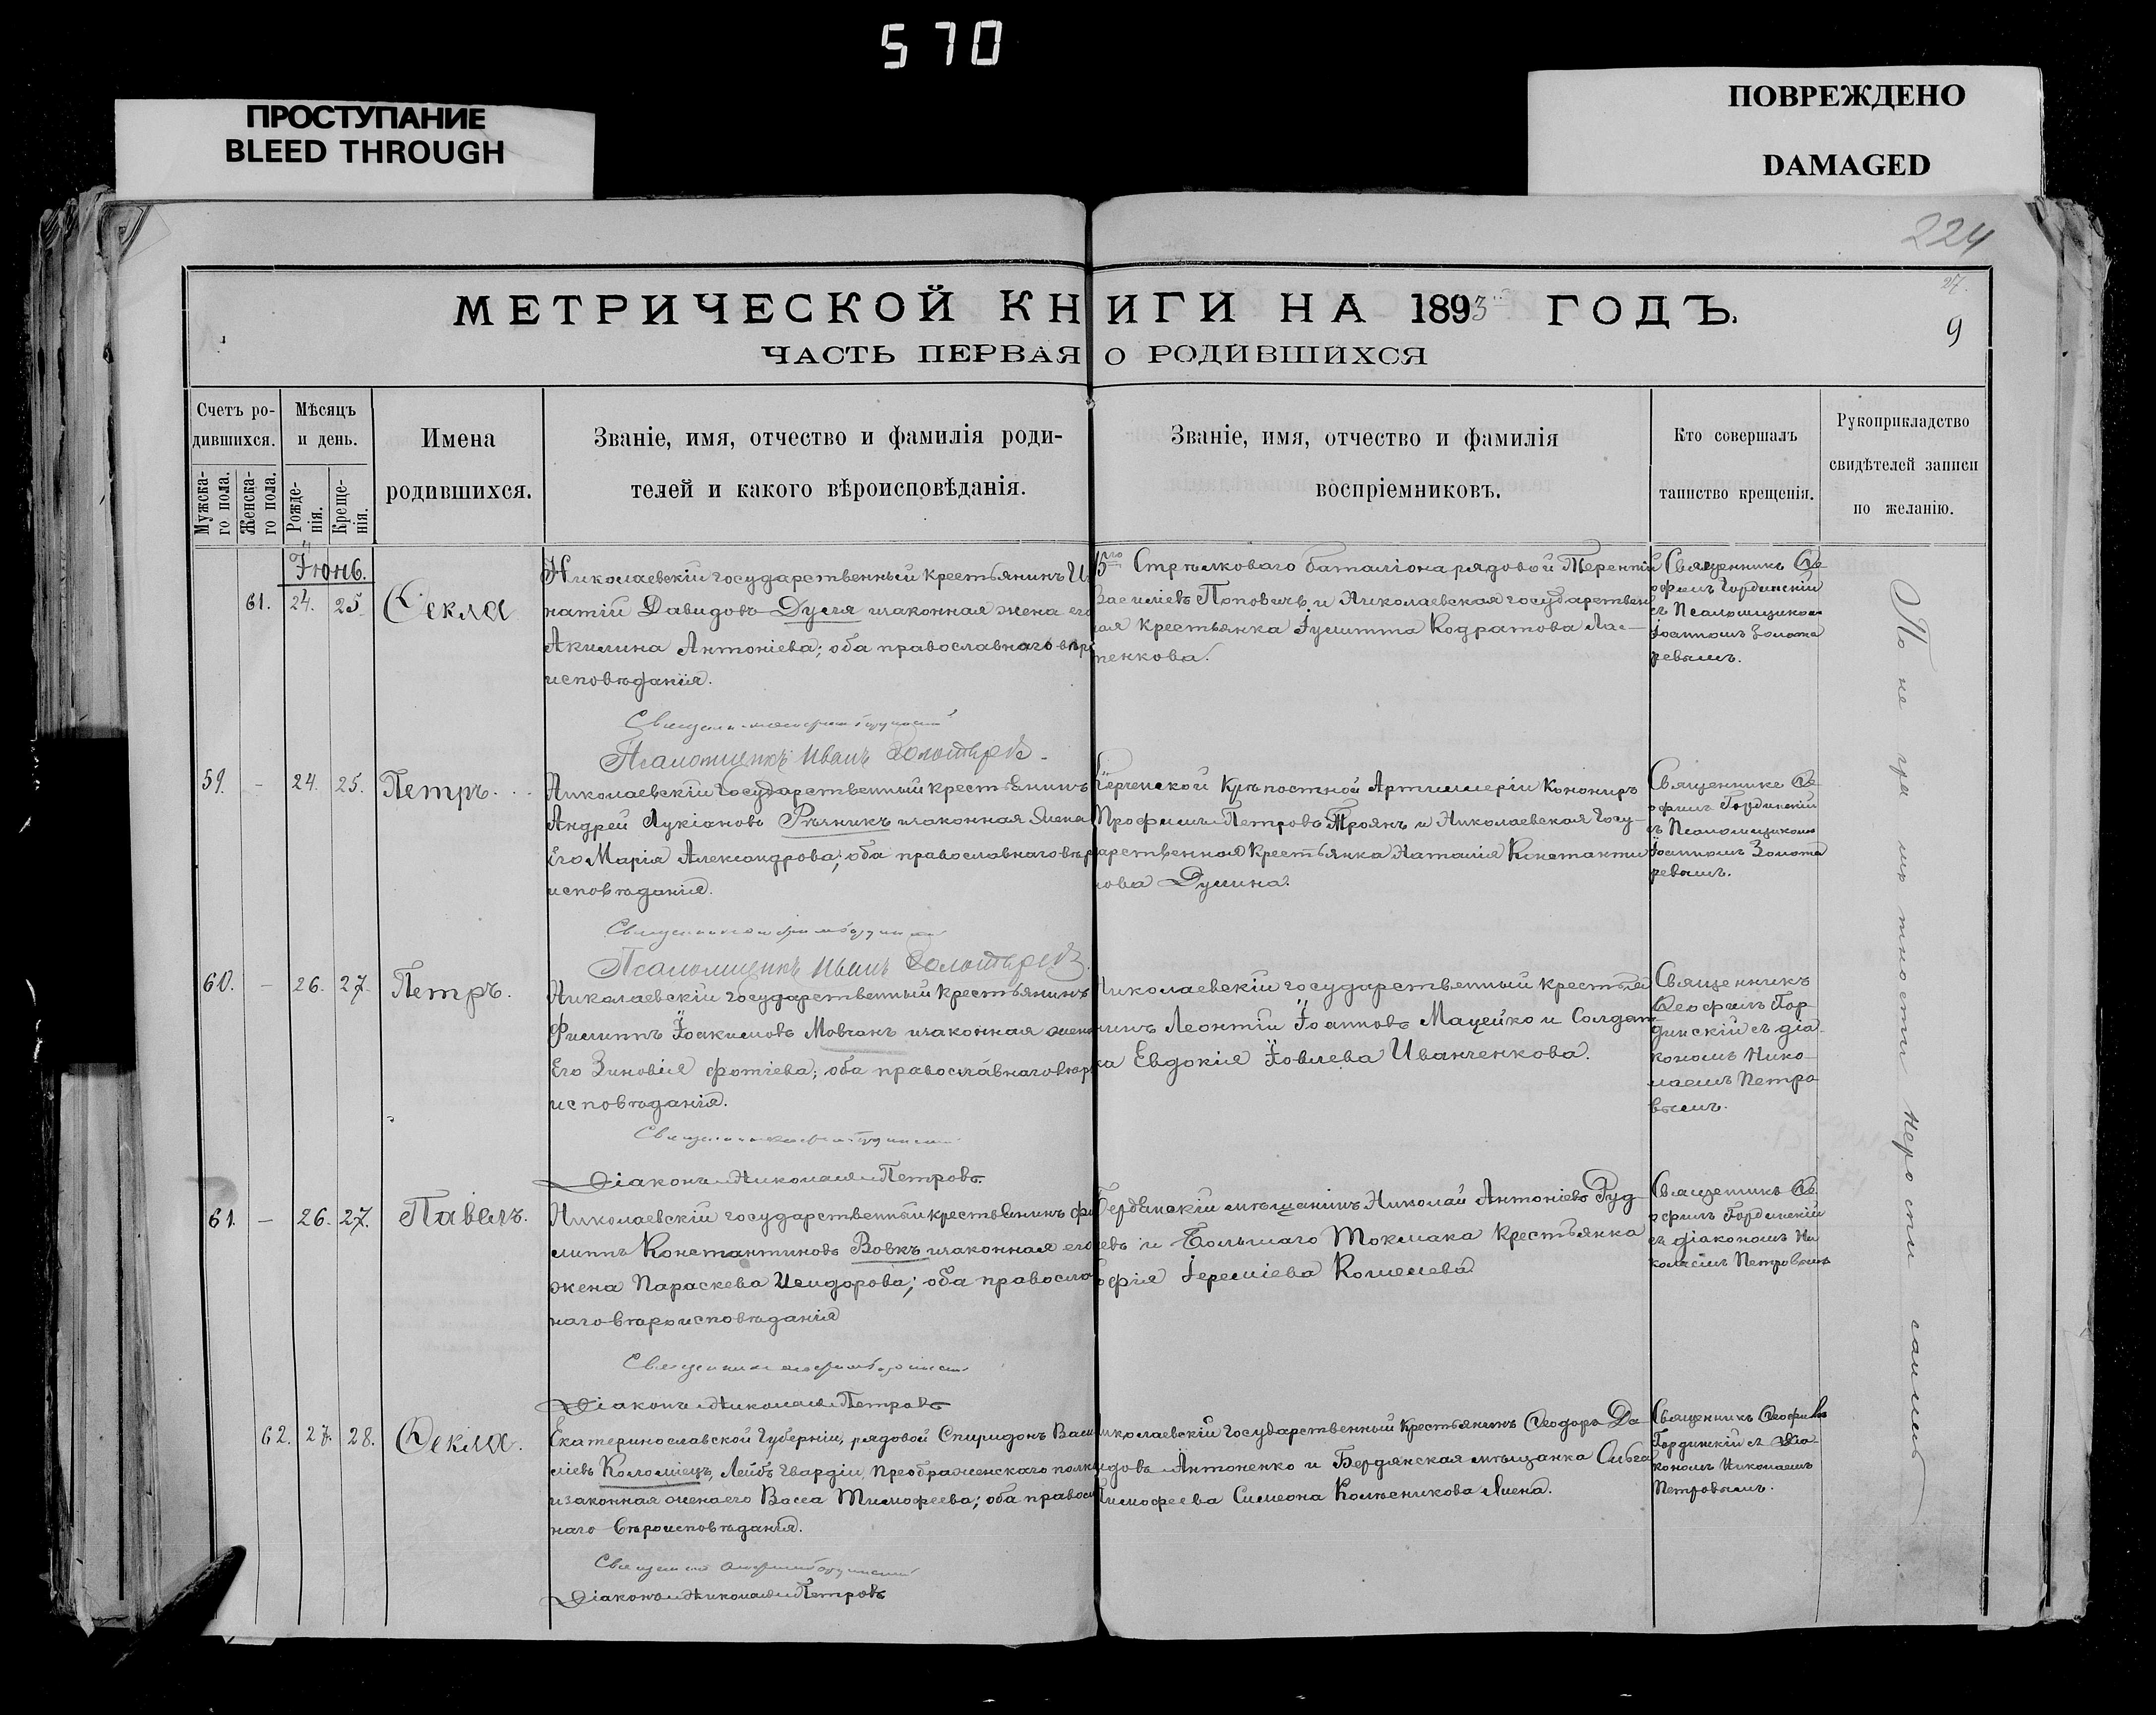 570
ПРОСТУПАНИЕ
BLEED THROUGH
ПОВРЕЖДЕНО
DAMAGED
224
27.
9
МЕТРИЧЕСКОЙ КНИГИ НА 1893 ГОДЪ.
ЧАСТЬ ПЕРВАЯ О РОДИВШИХСЯ
Счетъ ро-
дившихся.
Мужска-
го пола.
Женска-
го пола.
Мѣсяцъ
и день.
Рожде-
нія.
Креще-
нія.
Имена
родившихся.
Званіе, имя, отчество и фамилія роди-
телей и какого вѣроисповѣданія.
Званіе, имя, отчество и фамилія
воспріемниковъ.
Кто совершалъ
таинство крещенія.
Рукоприкладство
свидѣтелей записи
по желанію.
Іюнь.
61. 24. 25. Ѳекла
Николаевскій государственный крестьянинъ И
натій Давидовъ Дуля и законная жена его
Акилина Антоніева; оба православнаго вѣро
исповѣданія.
15го Стрѣлковаго баталіона рядовой Терентій
Василіевъ Поповичъ и Николаевская государствен
ная крестьянка Іулитта Кодратова
тенкова.
Священникъ Ѳе
офилъ Гординскій
съ Псаломщикомъ
Іоанномъ Золота
ревымъ.
Псаломщикъ Иванъ Золотаревъ
59. – 24. 25. Петръ.
Николаевскій государственный крестьянинъ
Андрей Лукіановъ Рѣзникъ и законная жена
Его Марія Александрова; оба православнаго вѣро
исповѣданія.
Керченской Крѣпостной Артиллеріи Кононіръ
Трофимъ Петровъ Троянъ и Николаевская Госу-
дарственная крестьянка Наталія Константи
нова Дулина.
Священникъ Ѳе
офилъ Гординскій
съ Псаломщикомъ
Іоанномъ Золота
ревымъ.
Псаломщикъ Иванъ Золотаревъ
60. – 26. 27. Петръ.
Николаевскій государственный крестьянинъ
Филиппъ Іоакимовъ Мовчанъ и законная жена
Его Зиновія Фотіева; оба православнаго вѣро
исповѣданія.
Николаевскій государственный крестья
нинъ Леонтій Іоанновъ Мацейко и Солдат
ка Евдокія Іовлева Иванченкова.
Священникъ
Ѳеофилъ Гор-
динскій съ діа-
кономъ Нико-
лаемъ Петро
вымъ.
Діаконъ Николай Петровъ
61. – 26. 27. Павелъ.
Николаевскій государственный крестьянинъ Фи
липпъ Константиновъ Вовкъ и законная его
жена Параскева Исидорова; оба православ
наго вѣроисповѣданія
Бердянскій мѣщанинъ Николай Антоніевъ Руд-
евъ и Большаго Токмака крестьянка
Софія Іереміева Кошелева
Священникъ Ѳе
офилъ Гординскій
съ діакономъ Ни
колаемъ Петровымъ
Діаконъ Николай Петровъ
62. 27. 28. Ѳекла.
Екатеринославской Губерніи, рядовой Спиридонъ Васи
ліевъ Коломіецъ, Лейбъ Гвардіи, Преображенскаго полка
и законная жена его Васса Тимофеева; оба православ
наго вѣроисповѣданія.
Николаевскій государственный крестьянинъ Ѳеодоръ Да-
видовъ Антоненко и Бердянская мѣщанка Ольга
Тимофеева Симеона Колѣсникова жена.
Священникъ Ѳеофилъ
Гординскій съ Діа-
кономъ Николаемъ
Петровымъ.
Діаконъ Николай Петровъ
По не гра мо тности